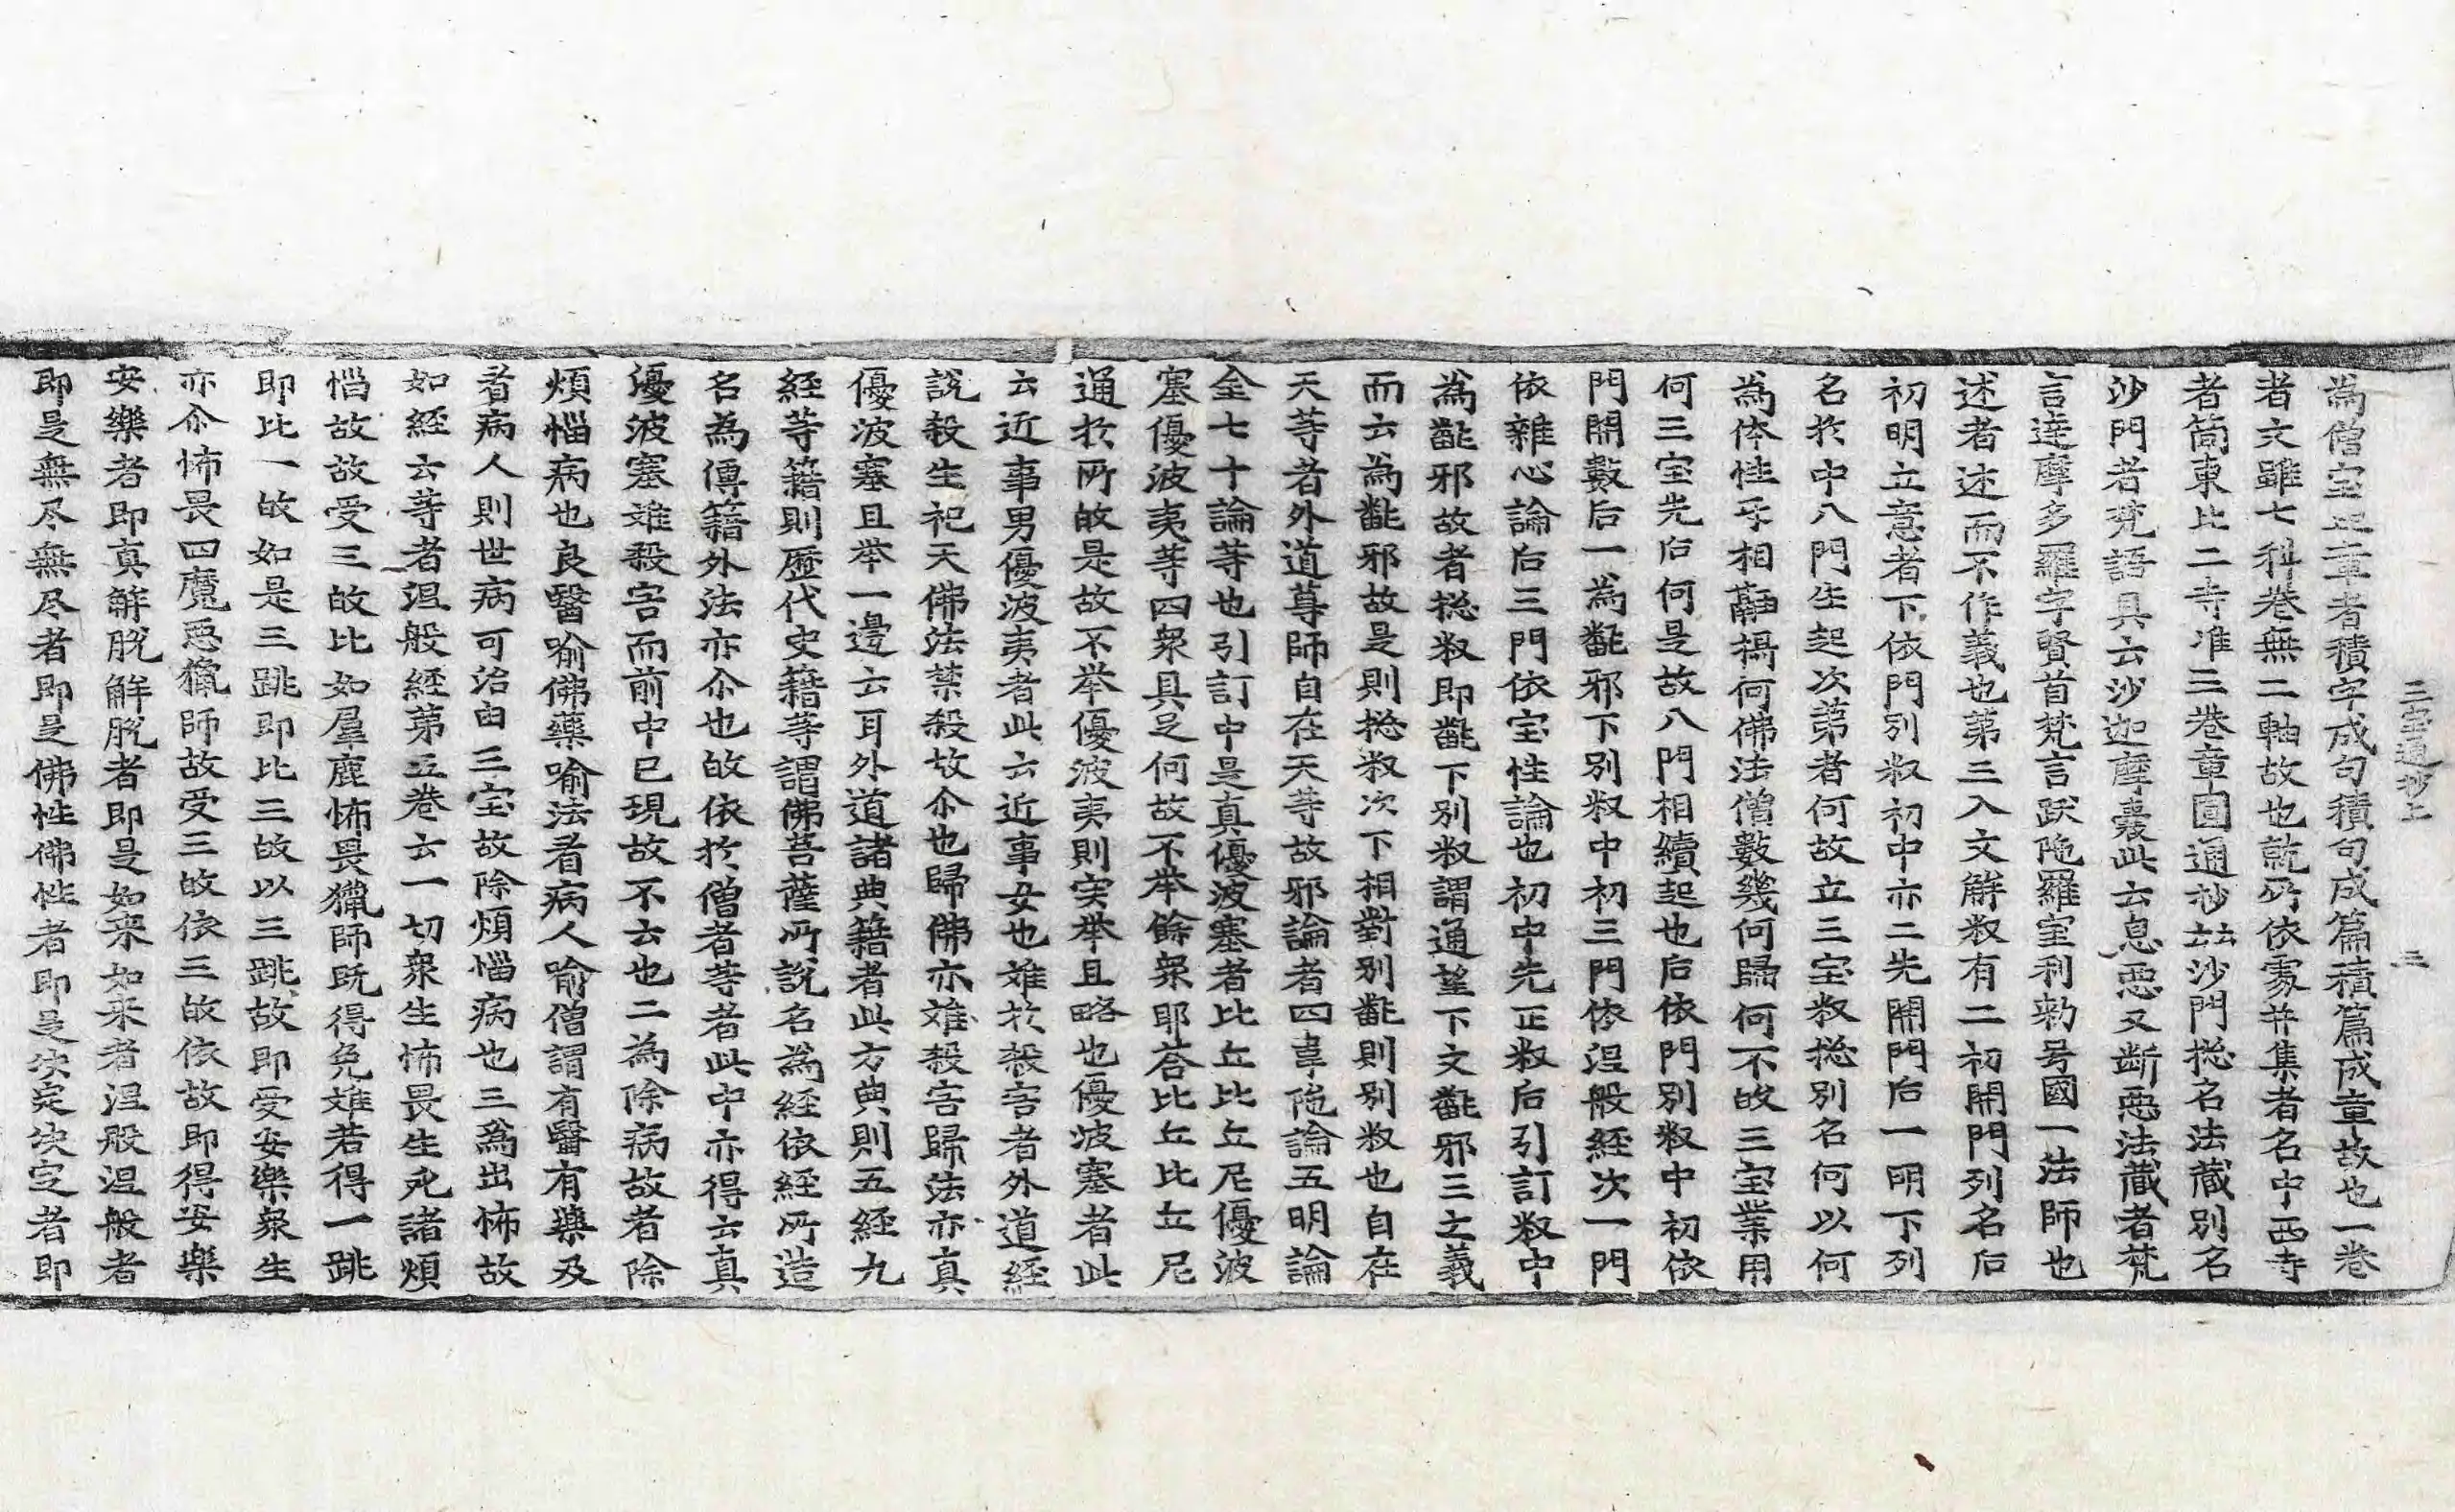 三宝通抄上 三
為僧宝也章者積字成句積句成篇積篇成章故也一卷
者文雖七科卷無二軸故也就所依處并集者名中西寺
者簡東北二寺准三卷章圓通抄云云沙門捴名法蔵別名
沙門者梵語具云沙迦摩囊此云息惡又斷惡法蔵者梵
言達摩多羅字賢首梵言跋陁羅室利勅号國一法師也
述者述而不作義也第三入文解釈有二初開門列名后
初明立意者下依門別釈初中亦二先開門后一明下列
名扵中八門生起次第者何故立三宝釈捴別名何以何
為体性乎相融攝何佛法僧數幾何歸何不㱕三宝業用
何三宝先后何是故八門相續起也后依門別釈中初依
門開數后一為齓邪下別釈中初三門依涅般経次一門
依雜心論后三門依宝性論也初中先正釈后引訂釈中
為齓邪故者捴釈即齓下別釈謂通望下文齓邪三之義
而云為齓邪故是則捴釈次下相對別齓則別釈也自在
天等者外道尊師自在天等故邪論者四韋陁論五明論
金七十論等也引訂中是真優波塞者比丘比丘尼優波
塞優波夷等四衆具足何故不举餘衆耶荅比丘比丘尼
通扵所㱕是故不举優波夷則实举且略也優波塞者此
云近事男優波夷者此云近事女也雖扵殺害者外道経
說殺生祀天佛法禁殺故尒也歸佛亦雖殺害歸法亦真
優波塞且举一邊云耳外道諸典籍者此方典則五経九
経等籍則歷代史籍等謂佛菩薩所說名為経依経所造
名為傳籍外法亦尒也㱕依扵僧者等者此中亦得云真
優波塞雖殺害而前中已現故不云也二為除病故者除
煩惱病也良醫喻佛藥喻法看病人喻僧謂有醫有藥及
看病人則世病可治由三宝故除煩惱病也三為出怖故
如経云等者涅般経第五卷云一切衆生怖畏生死諸煩
惱故故受三㱕比如羣鹿怖畏獵師旣得免雖若得一跳
即比一㱕如是三跳即比三㱕以三跳故即受安樂衆生
亦尒怖畏四魔惡獵師故受三㱕依三㱕依故即得安樂
安樂者即真解脫解脫者即是如来如来者涅般涅般者
即是無尽無尽者即是佛性佛性者即是决定决定者即